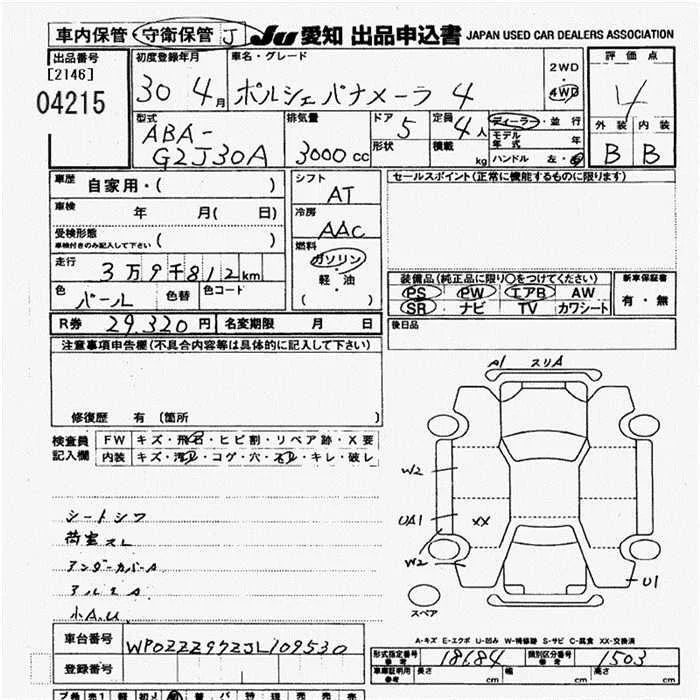 車内保管・守衛保管 J JU 愛知 出品申込書 JAPAN USED CAR DEALERS ASSOCIATION
出品番号
[2146]
04215
初度登録年月
30 4月
車名・グレード
ポルシェパナメーラ 4
2WD
・
4WD
評価点
4
外装 内装
B B
型式
ABA-
G2J30A
排気量
3000cc
ドア 5
形状
定員 4人
積載 kg
ディーラー・並行
モデル年式 年
ハンドル 左・右
車歴 自家用・( )
車検 年 月( 日)
受検形態
車検付きのみ記入して下さい ( )
走行 3万9千812km
色 パール 色替 色コード
シフト
AT
冷房
AAC
燃料
ガソリン
・
軽・油
( )
セールスポイント(正常に機能するものに限ります)
装備品(純正品に限り○をつけてください)
PS PW エアB AW
SR ナビ TV カワシート
新車保証書
有・無
R券 29,320円 名変期限 月 日
後日品
注意事項申告欄(不具合内容等は具体的に記入して下さい)
修復歴 有 (箇所 )
検査員
記入欄
FW キズ・飛石・ヒビ割・リペア跡・X要
内装 キズ・汚レ・コゲ・穴・スレ・キレ・破レ
シートシワ
荷室スレ
アンダーカバーA
アルミA
小A.U.
A1 スリA
W2
UA1 XX
W2
U1
スペア
A-キズ E-エクボ U-凹み W-補修跡 S-サビ C-腐食 XX-交換済
車台番号 WP0ZZZ97ZJL109530
登録番号
形式指定番号
参考
18684
類別区分番号
参考
1503
車庫証明用
参考
長さ 幅 高さ